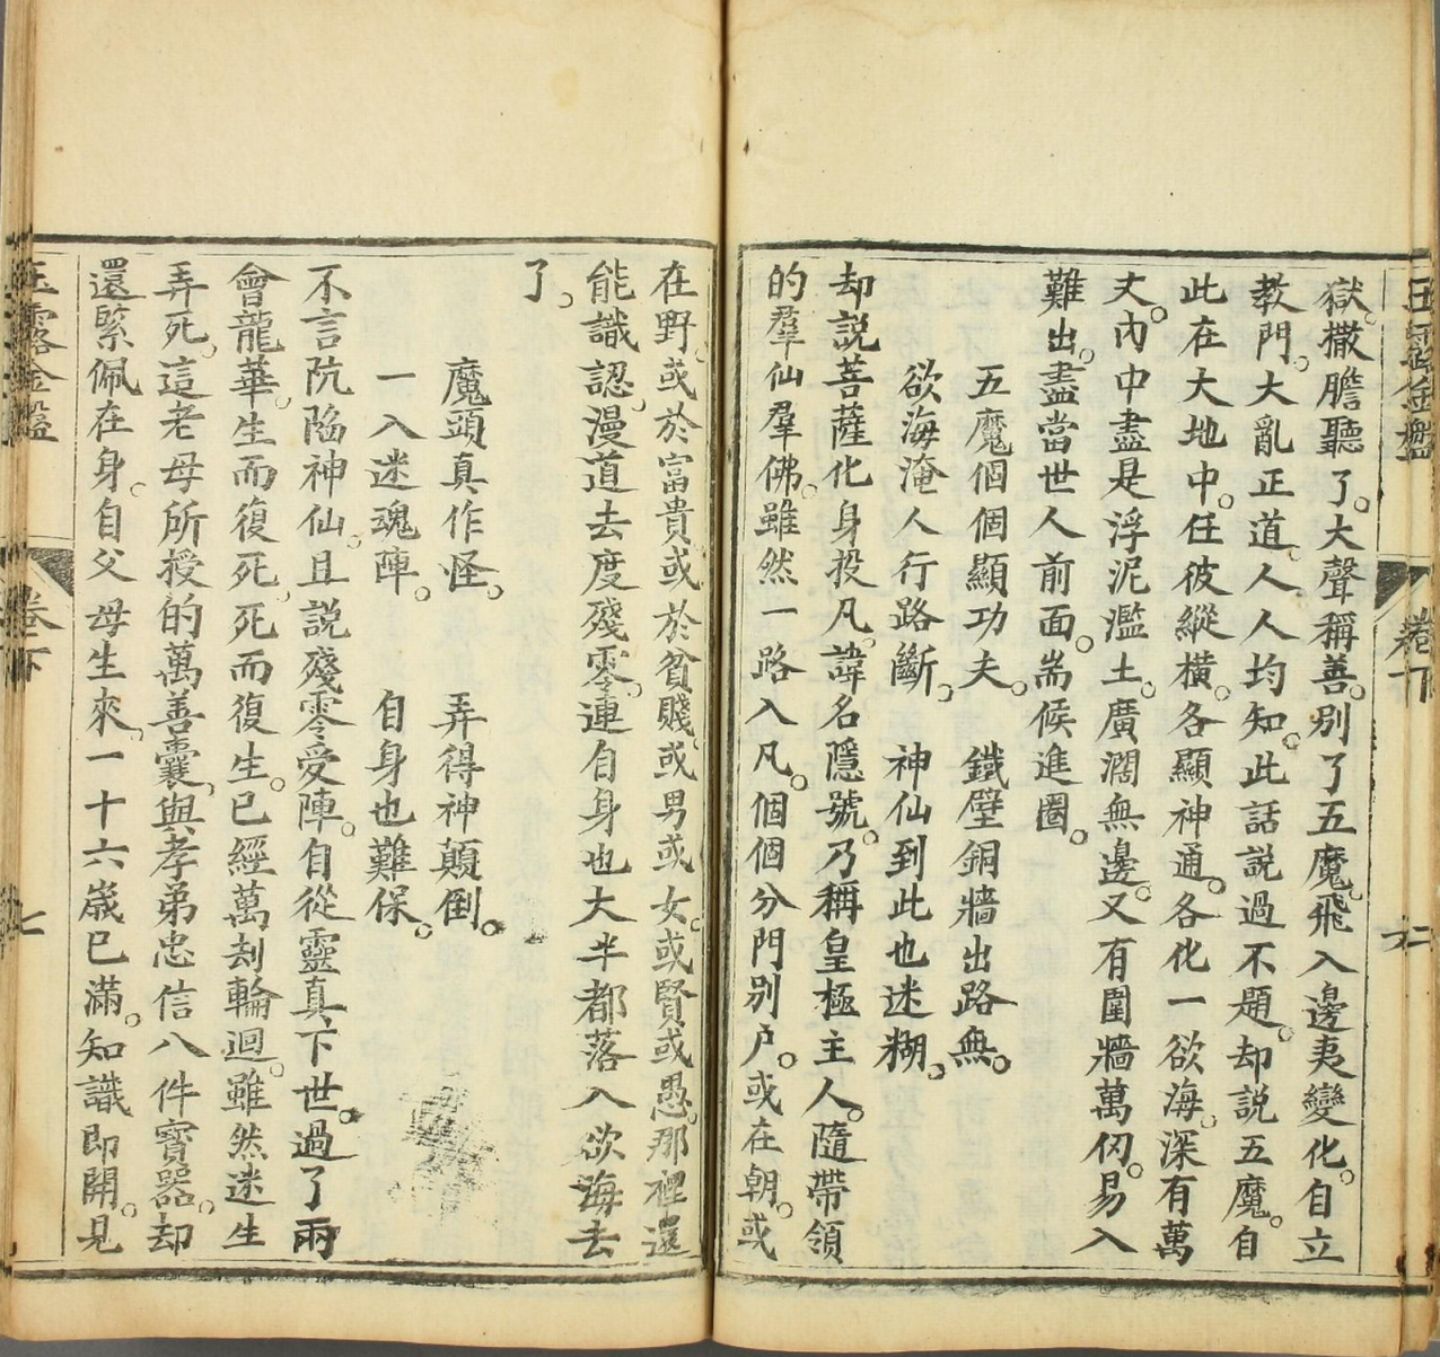 玉露金盤 卷下 六
獄。撒膽聽了。大聲稱善。別了五魔。飛入邊夷變化。自立
教門。大亂正道。人人均知。此話説過不題。却説五魔。自
此在大地中。任彼縱橫。各顯神通。各化一欲海。深有萬
丈。內中盡是浮泥濫土。廣濶無邊。又有圍牆萬仞。易入
難出。盡當世人前面。耑候進圈。
五魔個個顯功夫。 鐵壁銅牆出路無。
欲海淹人行路斷。 神仙到此也迷糊。
却説菩薩化身投凡。諱名隱號。乃稱皇極主人。隨帶領
的羣仙羣佛。雖然一路入凡。個個分門別户。或在朝。或
在野。或於富貴。或於貧賤。或男或女。或賢或愚。那裡還
能識認。漫道去度殘零。連自身也大半都落入欲海去
了。
魔頭真作怪。 弄得神顛倒。
一入迷魂陣。 自身也難保。
不言阬陷神仙。且説殘零受陣。自從靈真下世。過了兩
會龍華。生而復死。死而復生。已經萬刦輪迴。雖然迷生
弄死。這老母所授的萬善囊。與孝弟忠信八件寳器。却
還緊佩在身。自父母生來。一十六嵗已滿。知識即開。見
玉露金盤 卷下 七